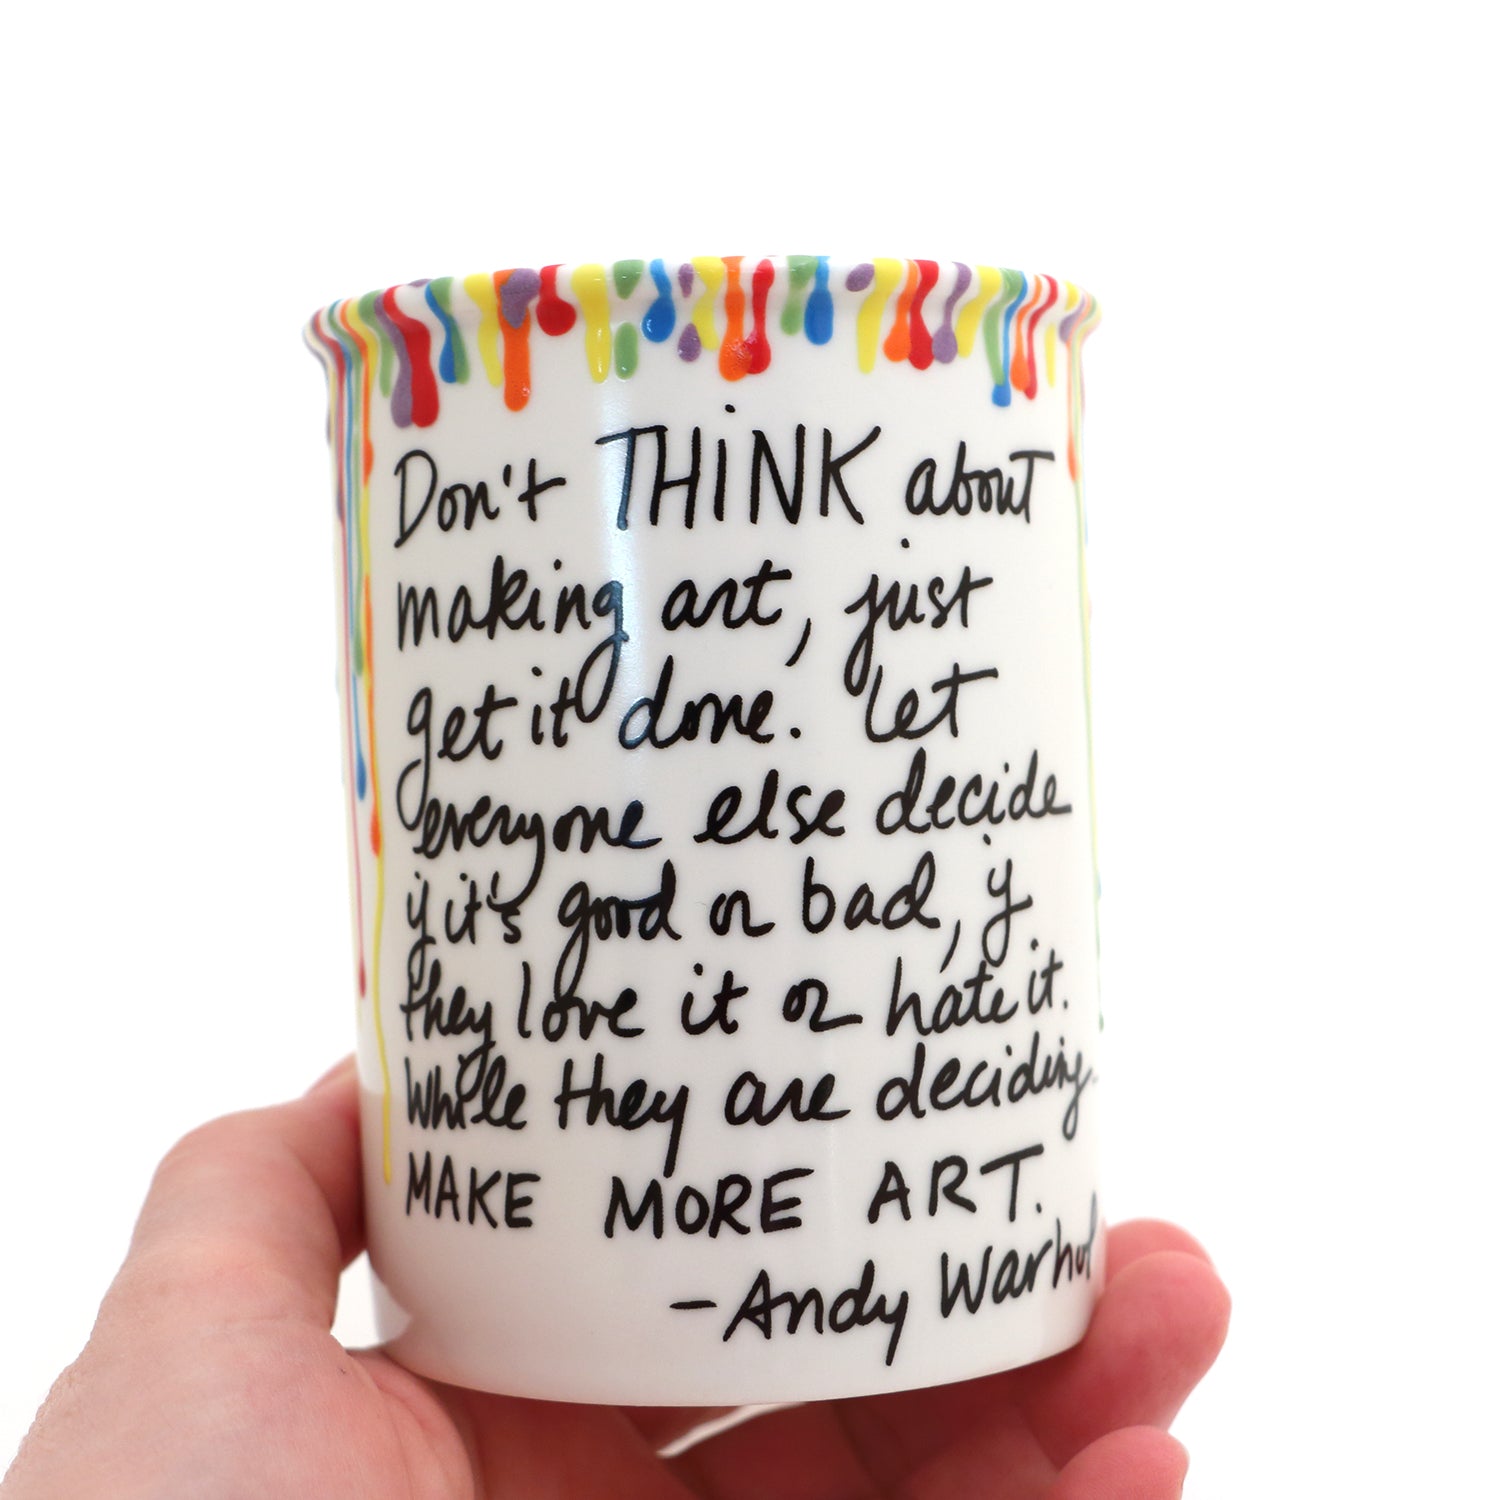 Don't THiNK about
making art, just
get it done. Let
everyone else decide
if it's good or bad, if
they love it or hate it.
While they are deciding.
MAKE MORE ART.
-Andy Warhol